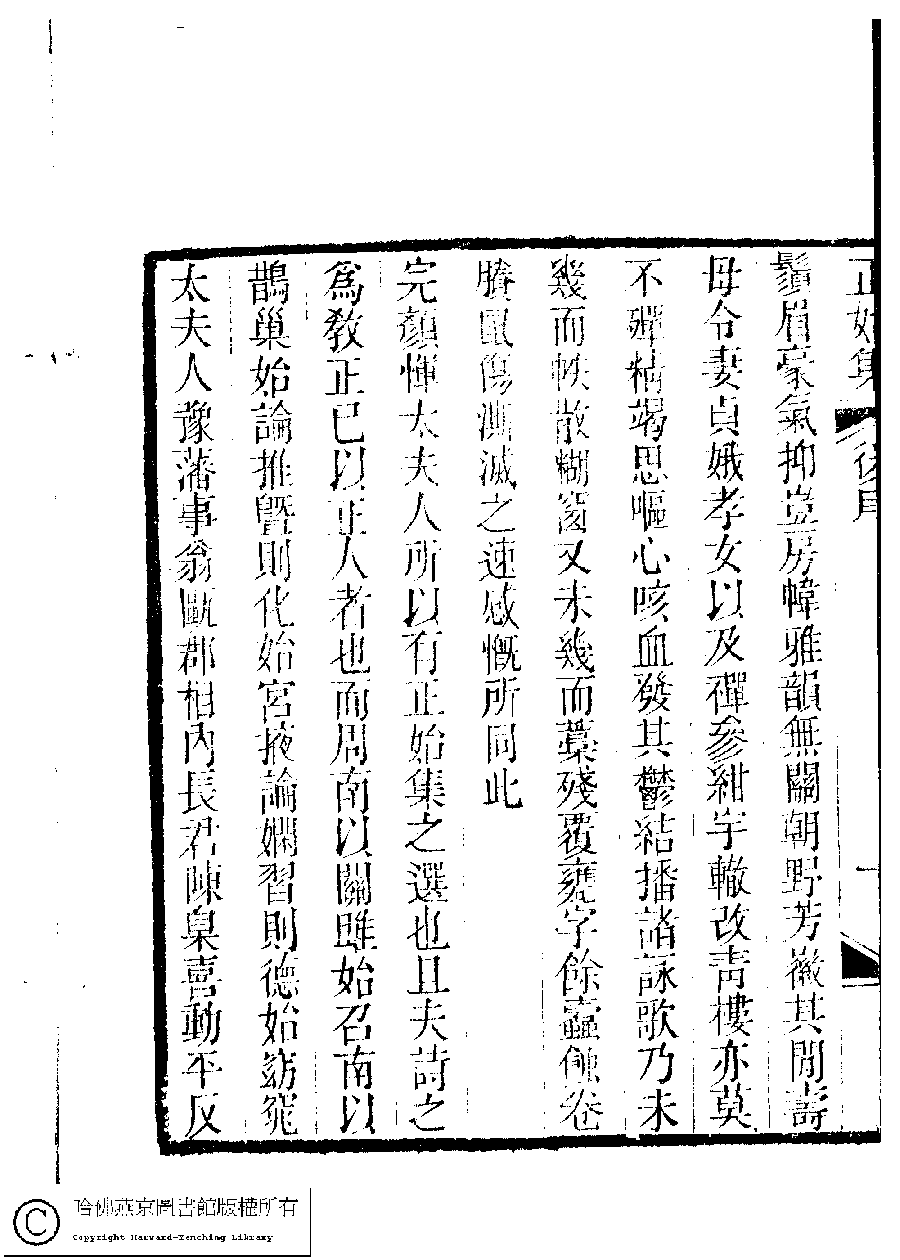 正始集 後序 一
鬚眉豪氣抑豈房幃雅韻無關朝野芳徽其閒壽
母令妻貞娥孝女以及禪參紺宇轍改靑樓亦莫
不殫精竭思嘔心咳血發其鬱結播諸詠歌乃未
幾而帙散糊窗又未幾而藁殘覆甕字餘蠹蝕卷
賸鼠傷澌滅之速感慨所同此
完顏惲太夫人所以有正始集之選也且夫詩之
爲教正已以正人者也而周南以關雎始召南以
鵲巢始論推曁則化始宮掖論嫻習則德始窈窕
太夫人豫藩事翁甌郡相內長君陳臬喜動平反
哈佛燕京圖書館版權所有
Copyright Harvard-Yenching Library